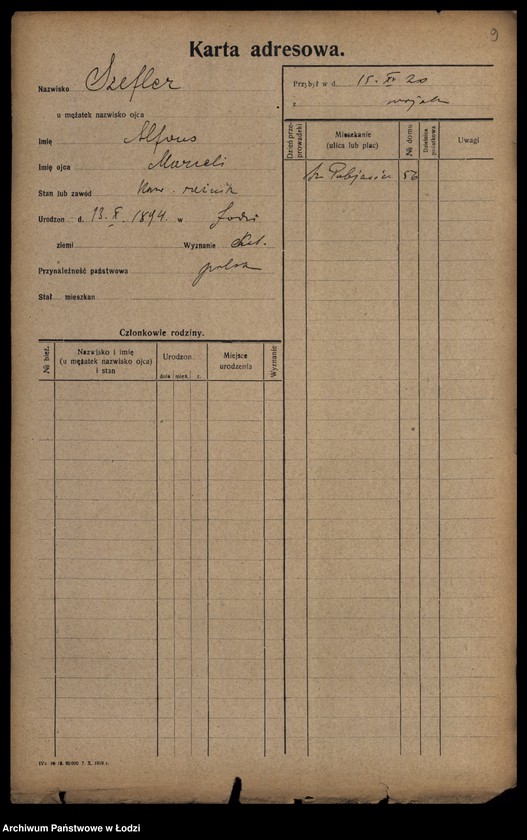 9
Karta adresowa.
Nazwisko Szefler
u mężatek nazwisko ojca
Imię Alfons
Imię ojca Marceli
Stan lub zawód Kaw. rzeźnik
Urodzon d. 13. X. 1894. w Łodzi
ziemi Wyznanie Kat.
Przynależność państwowa polsk
Stał. mieszkan
Przybył w d. 15. XI 20
z wojsk
Dzień przeprowadzki
Mieszkanie (ulica lub plac)
№ domu
Dzielnica podatkowa
Uwagi
Pabjanic 56
Członkowie rodziny.
№ bież.
Nazwisko i imię
(u mężatek nazwisko ojca)
i stan
Urodzon
dnia mies. r.
Miejsce
urodzenia
Wyznanie
Archiwum Państwowe w Łodzi